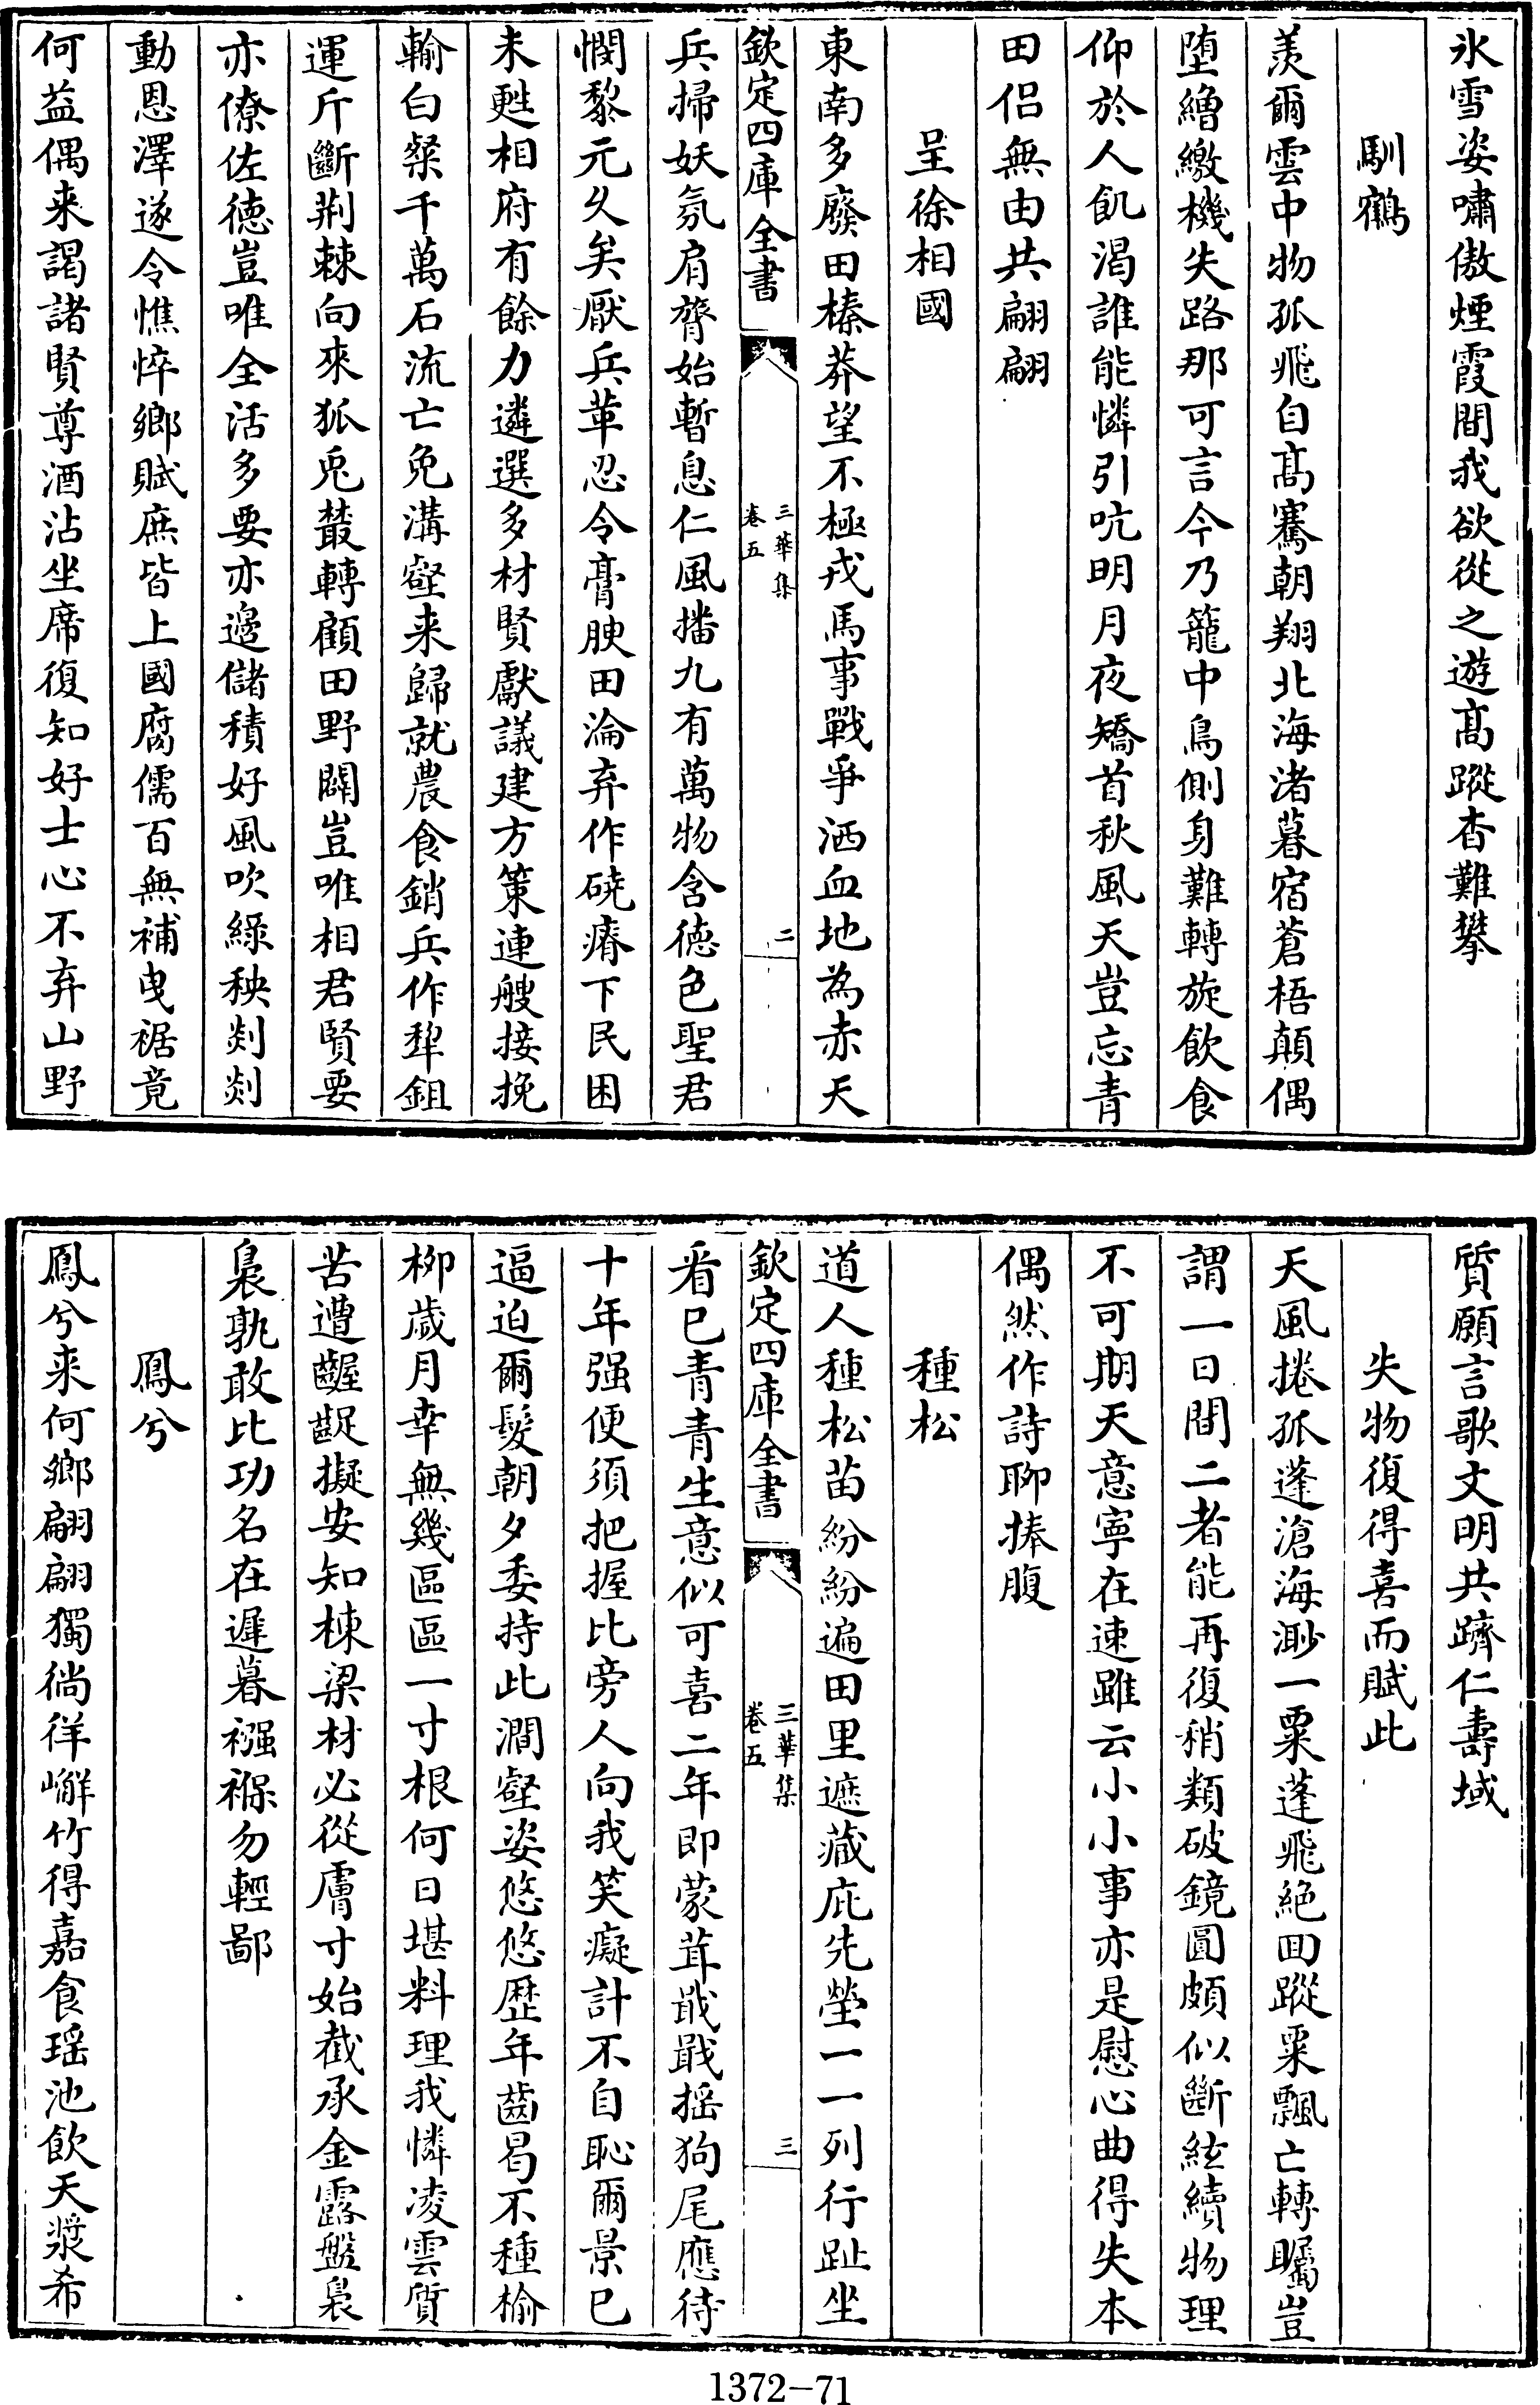 氷雪姿嘯傲煙霞間我欲從之遊髙蹤杳難攀
馴鶴
羨爾雲中物孤飛自髙騫朝翔北海渚暮宿蒼梧顛偶
堕繒繳機失路那可言今乃籠中鳥側身難轉旋飲食
仰於人飢渴誰能憐引吭明月夜矯首秋風天豈忘青
田侣無由共翩翩
呈徐相國
東南多廢田榛莽望不極戎馬事戰爭洒血地為赤天
欽定四庫全書
三華集
卷五
二
兵掃妖氛肩膂始暫息仁風播九有萬物含德色聖君
憫黎元久矣厭兵革忍令膏腴田淪弃作磽瘠下民困
未甦相府有餘力遴選多材賢獻議建方策連艘接挽
輸白粲千萬石流亡免溝壑来歸就農食銷兵作犂鉏
運斤斷荆棘向來狐兎藂轉顧田野闢豈唯相君賢要
亦僚佐徳豈唯全活多要亦邊儲積好風吹綠秧剡剡
動恩澤遂令憔悴鄉賦庶皆上國腐儒百無補曳裾竟
何益偶来謁諸賢尊酒沾坐席復知好士心不弃山野
質願言歌文明共躋仁壽域
失物復得喜而賦此
天風捲孤蓬滄海渺一粟蓬飛絶囬蹤粟飄亡轉矚豈
謂一日間二者能再復稍類破鏡圓頗似斷絃續物理
不可期天意寧在速雖云小小事亦是慰心曲得失本
偶然作詩聊捧腹
種松
道人種松苗紛紛遍田里遮蔵庇先塋一一列行趾坐
欽定四庫全書
三華集
卷五
三
看已青青生意似可喜二年即蒙茸戢戢揺狗尾應待
十年强便須把握比旁人向我笑癡計不自恥爾景已
逼迫爾髮朝夕委持此澗壑姿悠悠歴年齒曷不種榆
柳歳月幸無幾區區一寸根何日堪料理我憐凌雲質
苦遭齷齪擬安知棟梁材必從膚寸始截承金露盤裊
裊孰敢比功名在遲暮襁褓勿輕鄙
鳳兮
鳳兮来何鄉翩翩獨徜徉嶰竹得嘉食瑶池飲天漿希
1372-71